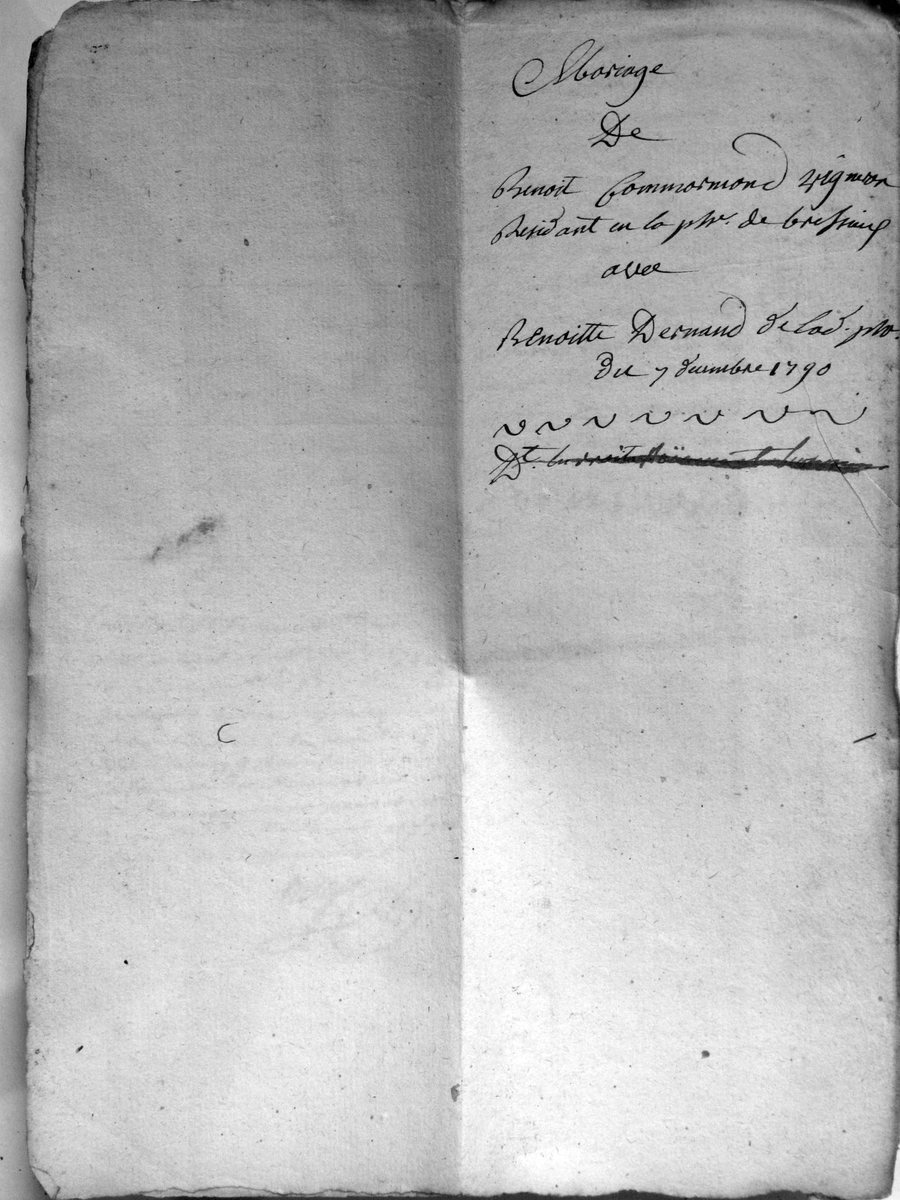 Mariage
De
Benoit Commarmond vigneron
Residant en la psse. de bressieux
avec
Benoitte Dernand de lad. psse.
du 7 decembre 1790
Dt.